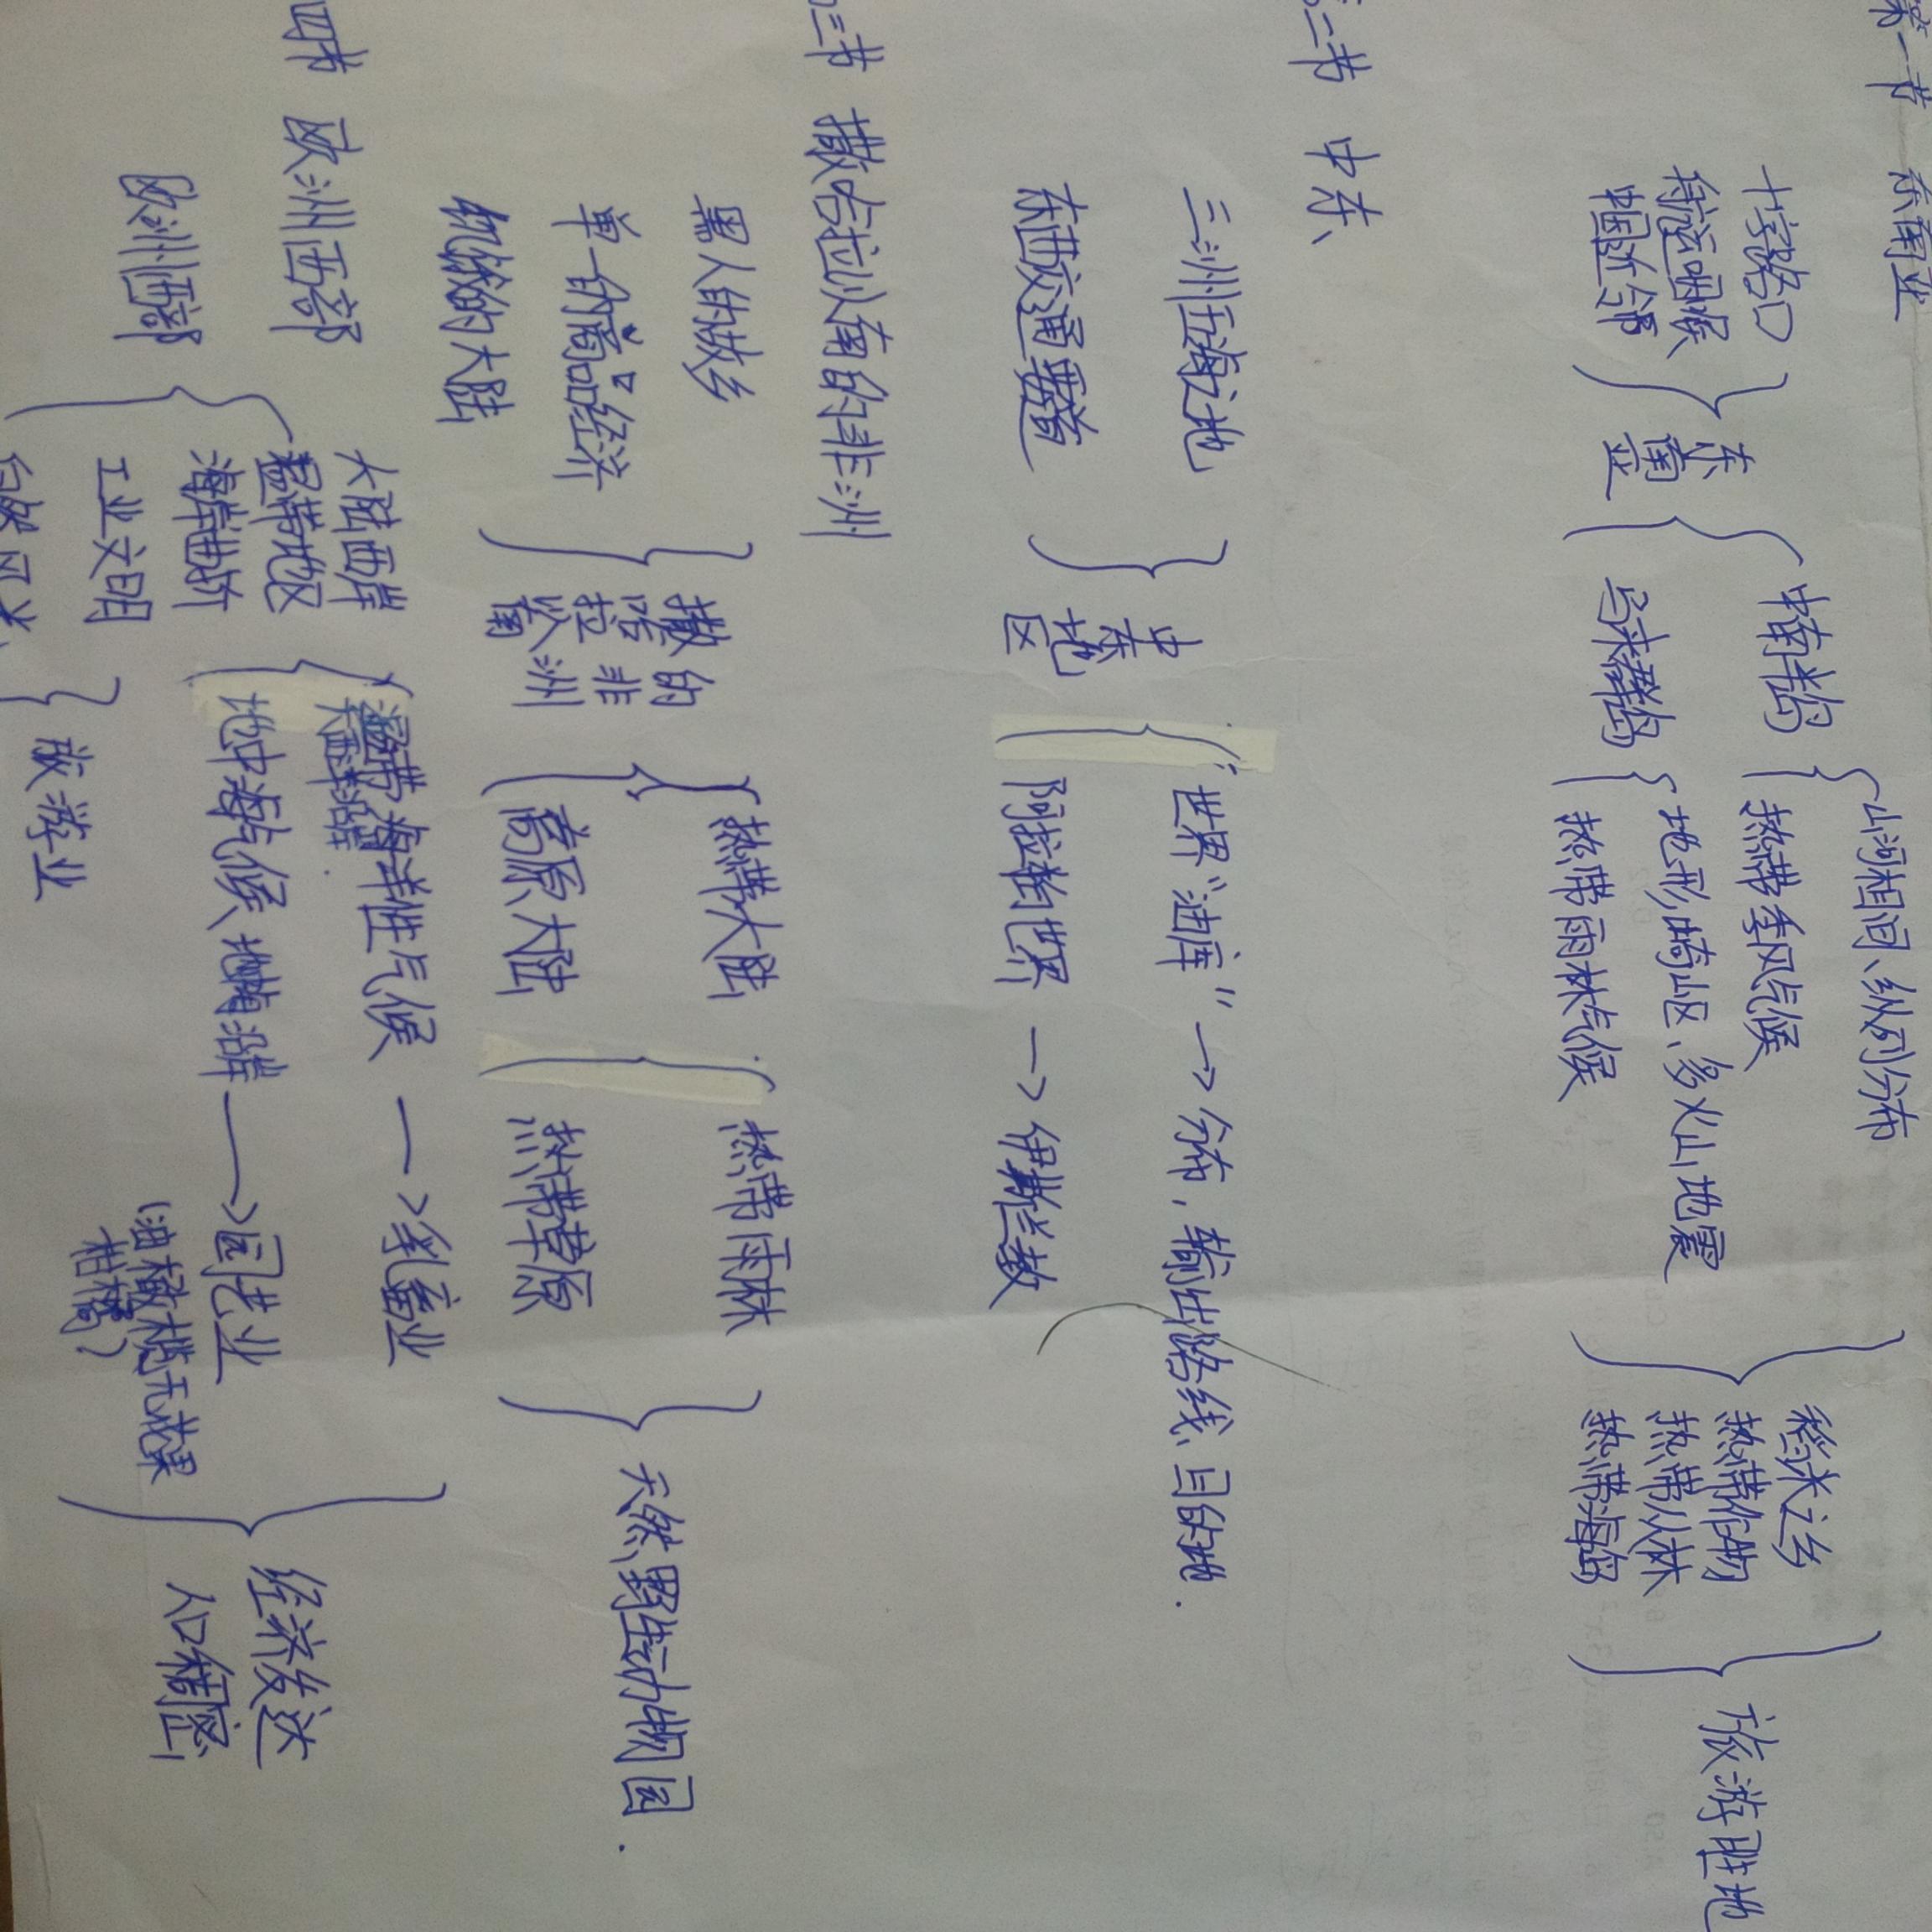 第一节 东南亚
十字路口
航运咽喉
中国近邻
东南亚
中南半岛
山河相间、纵列分布
热带季风气候
马来群岛
地形崎岖、多火山地震
热带雨林气候
稻米之乡
热带作物
热带丛林
热带海岛
旅游胜地
二节 中东
三洲五海之地
东西交通要道
中东地区
"世界"油库" → 分布，输出路线、目的地.
阿拉伯世界 → 伊斯兰教
三节 撒哈拉以南的非洲
黑人的故乡
单一的商品经济
饥饿的大陆
撒哈拉以南的非洲
热带大陆
高原大陆
热带雨林
热带草原
天然野生动物园.
四节 欧洲西部
欧洲西部
大陆西岸
温带地区
海岸曲折
工业文明
温带海洋性气候 → 乳畜业
大西洋沿岸.
地中海气候 地中海沿岸 → 园艺业
(油橄榄无花果
柑橘)
经济发达
人口稠密
旅游业